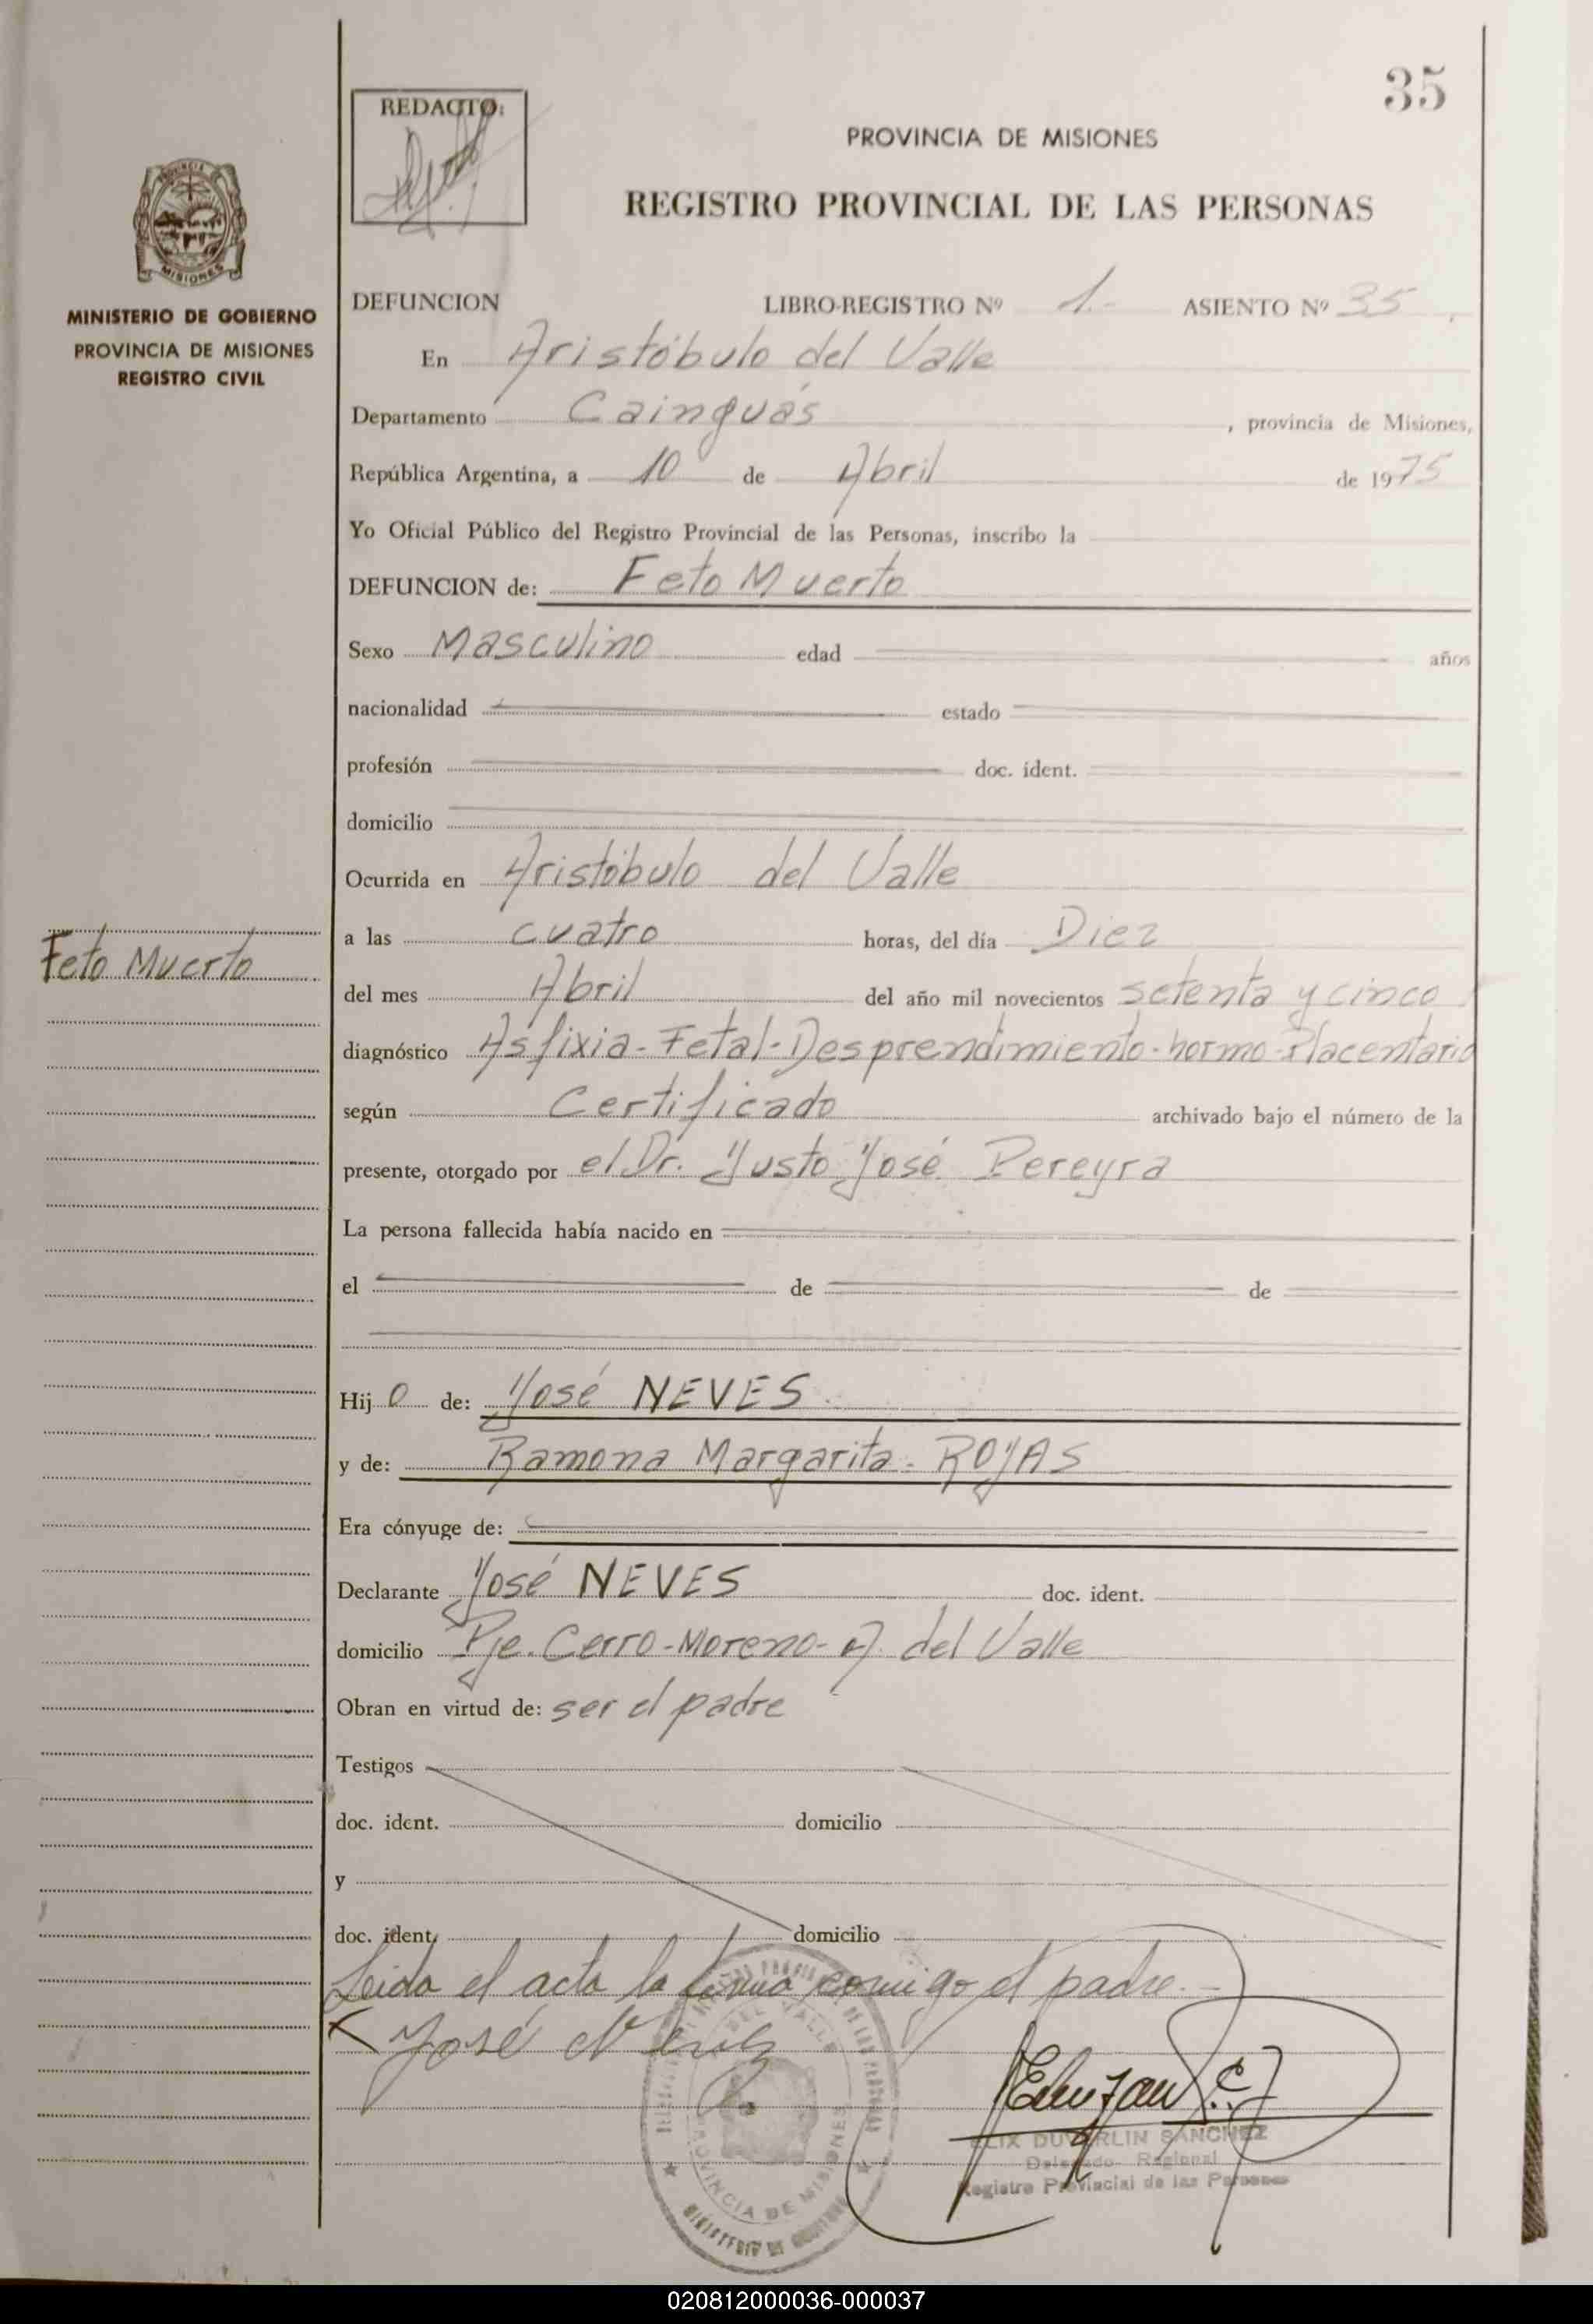 35
REDACTO:
PROVINCIA DE MISIONES
REGISTRO PROVINCIAL DE LAS PERSONAS
MISIONES
MINISTERIO DE GOBIERNO
PROVINCIA DE MISIONES
REGISTRO CIVIL
DEFUNCION LIBRO-REGISTRO Nº 1.- ASIENTO Nº 35
En Aristóbulo del Valle
Departamento Cainguás , provincia de Misiones,
República Argentina, a 10 de Abril de 1975
Yo Oficial Público del Registro Provincial de las Personas, inscribo la
DEFUNCION de: Feto Muerto
Sexo Masculino edad años
nacionalidad estado
profesión doc. ident.
domicilio
Ocurrida en Aristóbulo del Valle
Feto Muerto
a las cuatro horas, del día Diez
del mes Abril del año mil novecientos setenta y cinco
diagnóstico Asfixia-Fetal-Desprendimiento-hormo-Placentario
según Certificado archivado bajo el número de la
presente, otorgado por el Dr. Justo José Pereyra
La persona fallecida había nacido en
el de de
Hijo de: José NEVES.
y de: Ramona Margarita ROJAS
Era cónyuge de:
Declarante José NEVES doc. ident.
domicilio Pje. Cerro-Moreno-A. del Valle
Obran en virtud de: ser el padre
Testigos
doc. ident. domicilio
y
doc. ident. domicilio
Leida el acta la firma comigo el padre.-
José Neves
PROVINCIA DE MISIONES
ELIX DUVERLIN SANCHEZ
Delegado Regional
Registro Provincial de las Personas
020812000036-000037